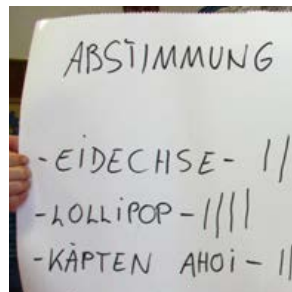 ABSTIMMUNG
-EIDECHSE- ||
-LOLLIPOP-||||
-KÄPTEN AHOI- ||